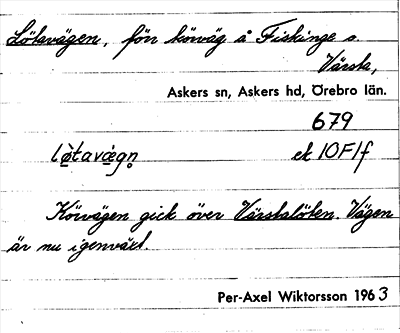 Lötavägen, förr körväg å Fiskinge o
Värsta,
Askers sn, Askers hd, Örebro län.
679
lö̀tavæ̀gn̥ ek 10F1f
Körvägen gick över Värstalöten. Vägen
är nu igenväxt.
Per-Axel Wiktorsson 1963